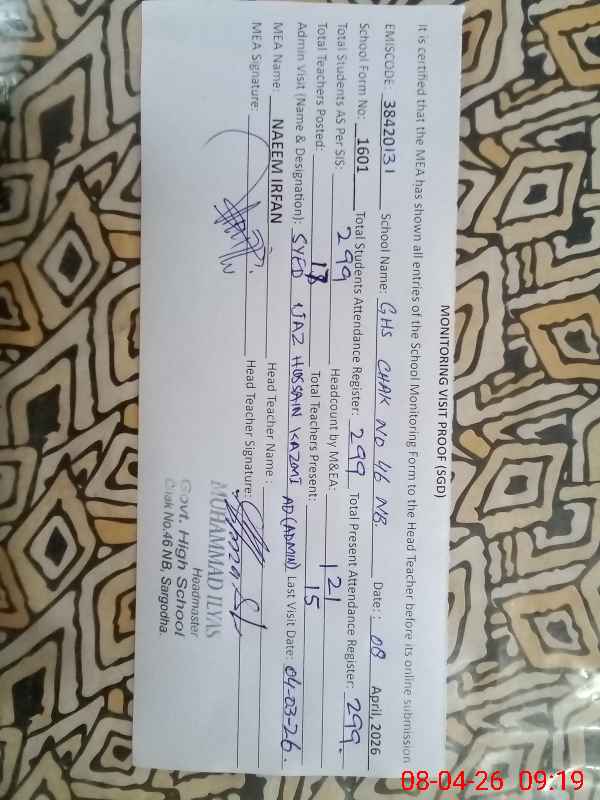 MONITORING VISIT PROOF (SGD)
It is certified that the MEA has shown all entries of the School Monitoring Form to the Head Teacher before its online submission
EMISCODE: 38420131 School Name: GHS CHAK NO 46 NB. Date: : 08 April, 2026
School Form No: 1601 Total Students Attendance Register: 299 Total Present Attendance Register: 299.
Total Students AS Per SIS: 299 Headcount by M&EA: 121
Total Teachers Posted: 18 Total Teachers Present: 15
Admin Visit (Name & Designation): SYED IJAZ HUSSAIN KAZMI AD(ADMIN) Last Visit Date: 04-03-26.
MEA Name: NAEEM IRFAN Head Teacher Name :
MEA Signature: Head Teacher Signature:
MUHAMMAD ILYAS
Headmaster
Govt. High School
Chak No.46 NB, Sargodha.
08-04-26 09:19